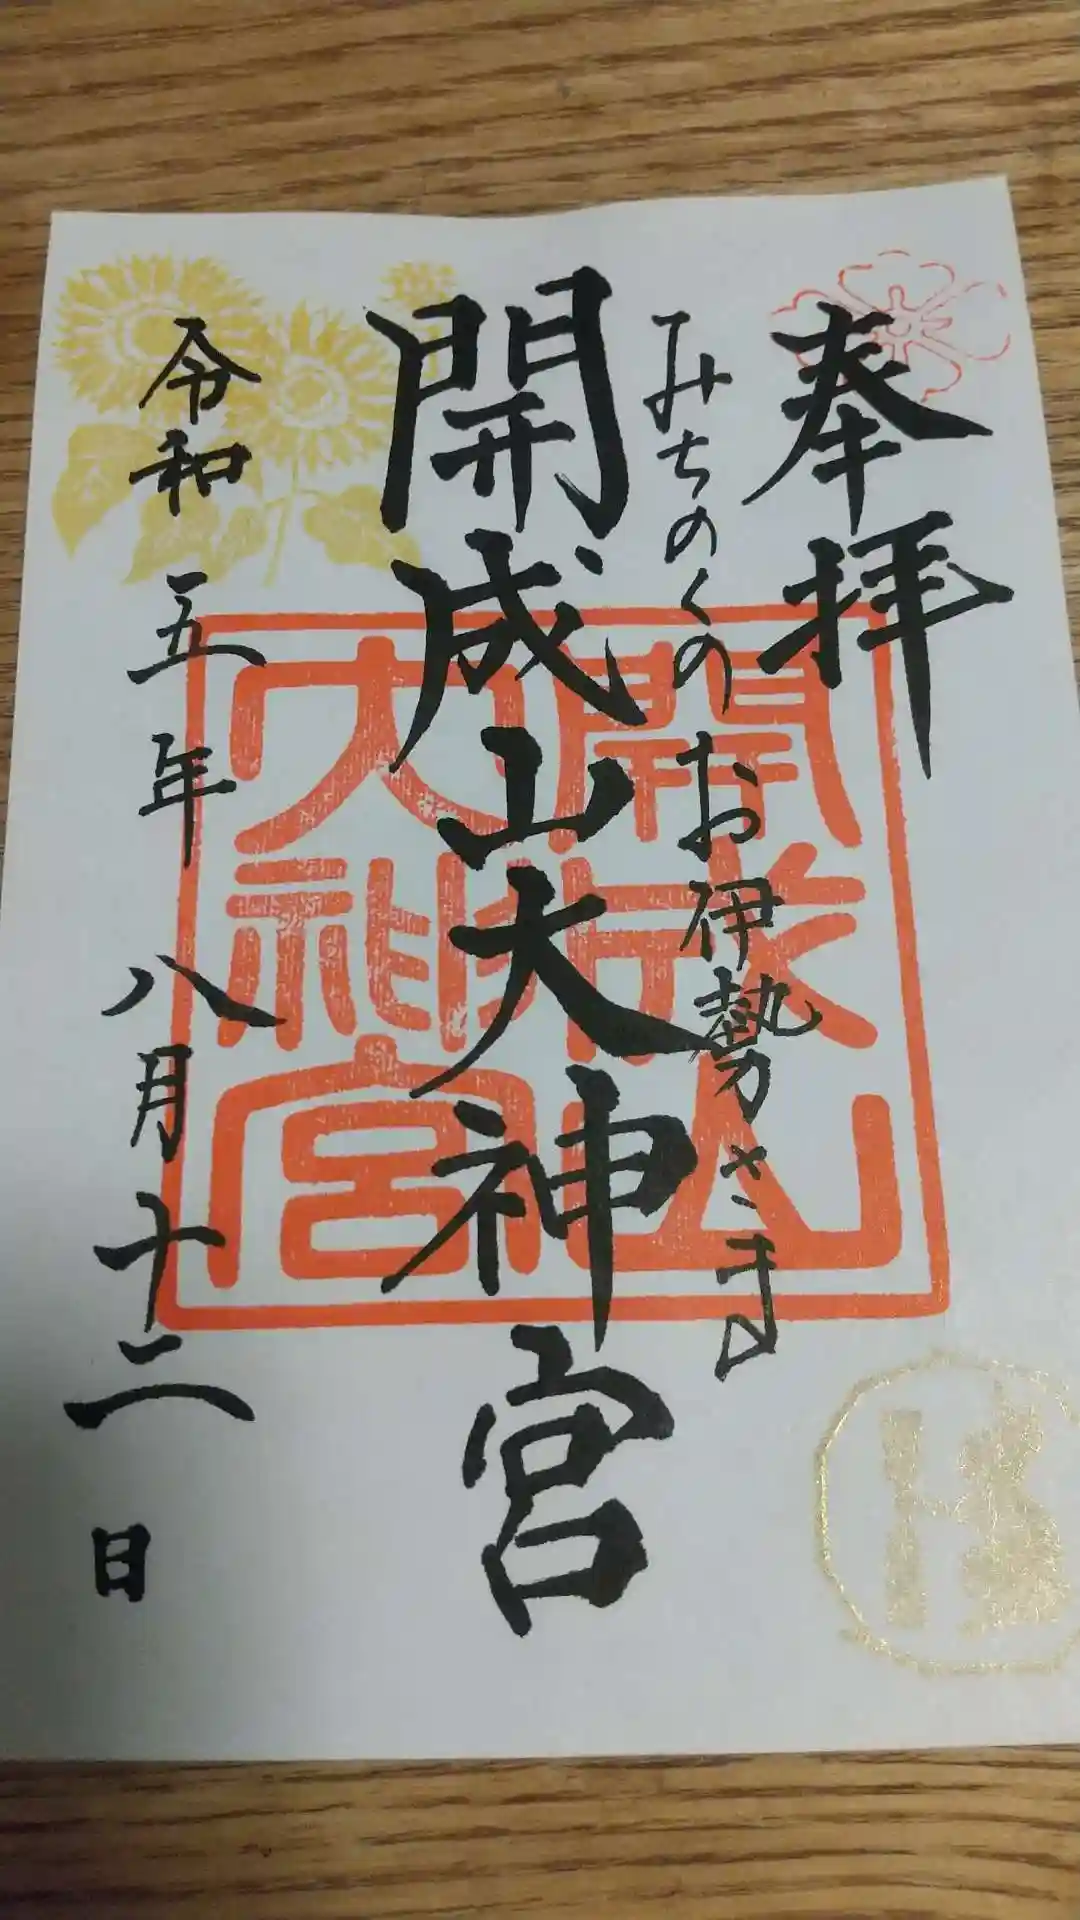 奉拝
みちのくのお伊勢さま
開成山大神宮
令和五年八月十二日
開成山
大神宮